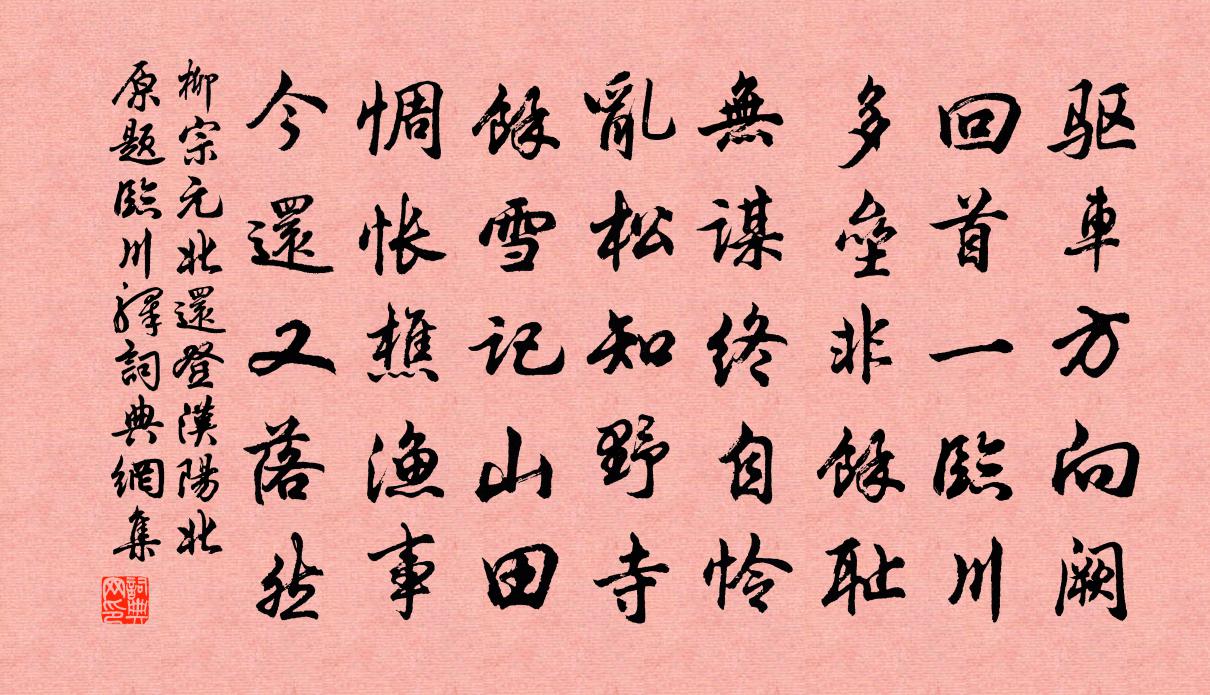 驱車方向阙
回首一臨川
多壘非餘耻
無謀終自怜
亂松知野寺
餘雪記山田
惆怅樵漁事
今還又落然
柳宗元北還登漢陽北
原題臨川驛詞典網集
詞典网印